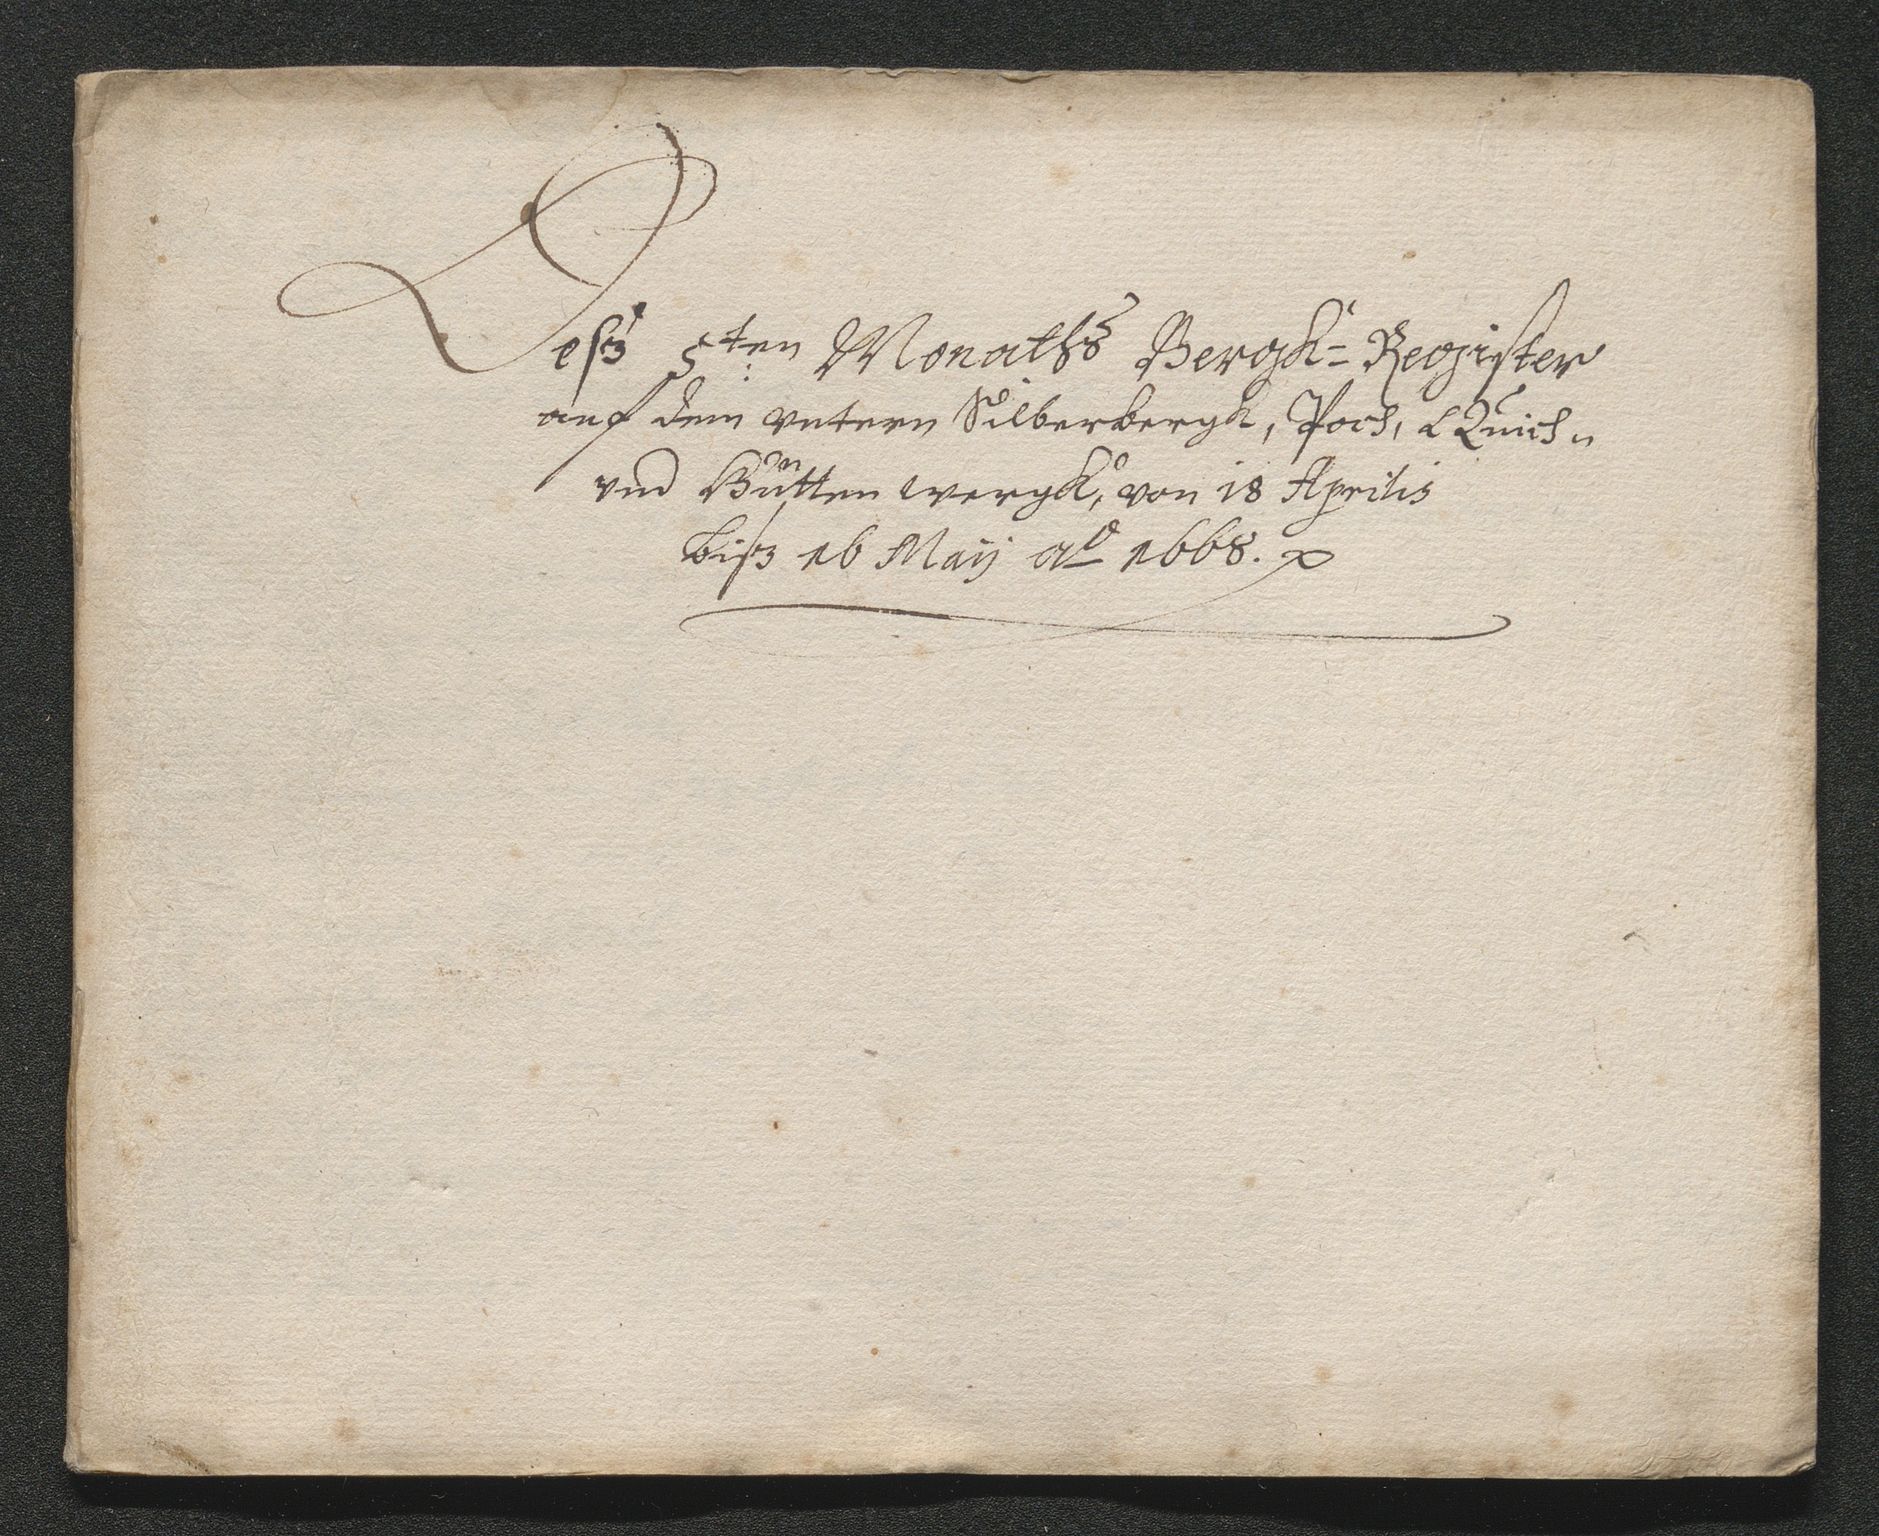 Deß 5ten Monaths Bergk= Register
auf dem vntern Silberbergk, Poch, Quich„
vnd Hütten wergk, von 18 Aprilis
biß 16 Maij ao 1668.